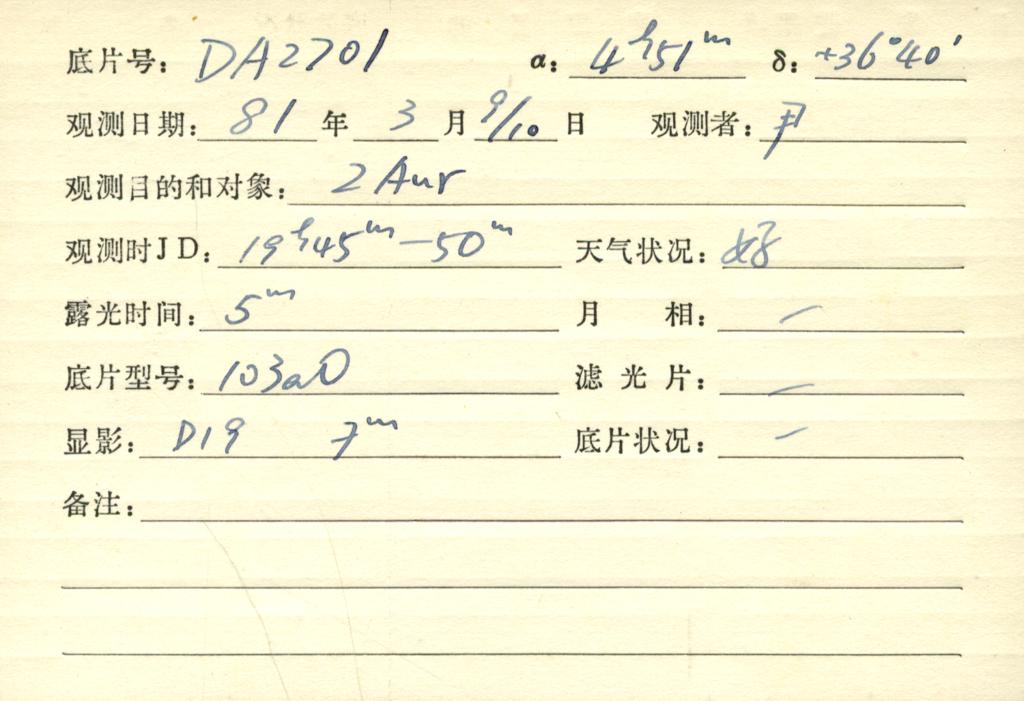 底片号: DA2701 α: 4ʰ51ᵐ δ: +36°40′
观测日期: 81 年 3 月 9/10 日 观测者: 尹
观测目的和对象: 2 Aur
观测时JD: 19ʰ45ᵐ—50ᵐ 天气状况: 好
露光时间: 5ᵐ 月 相: —
底片型号: 103aO 滤光片: —
显影: D19 7ᵐ 底片状况: —
备注: